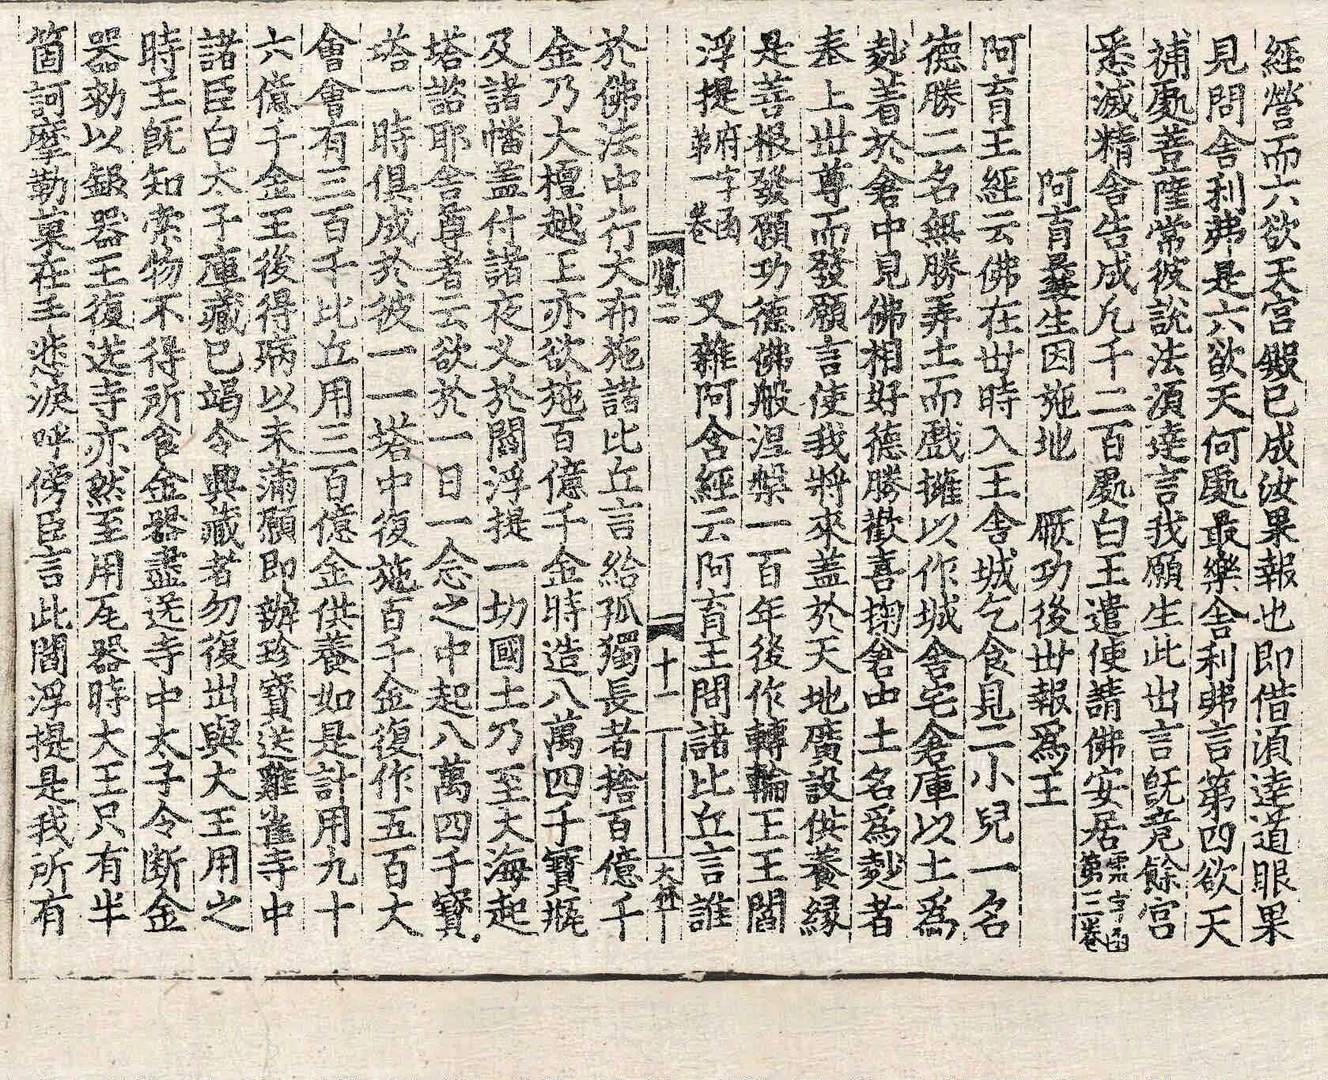 經營而六欲天宮㲉已成汝果報也即借湏達道眼果
見問舎利弗是六欲天何處最樂舎利弗言第四欲天
補處菩薩常彼說法湏達言我願生此出言旣竟餘宮
悉滅精舎告成凢千二百處白王遣使請佛安居
第三卷
阿育曩生因施地 厥功後丗報爲王
阿育王經云佛在丗時入王舎城乞食見二小兒一名
德勝二名無勝弄土而戲擁以作城舎宅倉庫以土爲
麨著於倉中見佛相好德勝歡喜掬倉中土名爲麨者
奉上丗尊而發願言使我將來盖於天地廣設供養緣
是善根發願功德佛般涅槃一百年後作轉輪王王閻
浮提府字函第一卷 又雜阿含經云阿育王問諸比丘言誰
覧二 十一
於佛法中行大布施諸比丘言給孤獨長者捨百億千
金乃大檀越王亦欲施百億千金時造八萬四千寶瓶
及諸幡盖付諸夜叉於閻浮提一切國土乃至大海起
塔詔耶舎尊者云欲於一日一念之中起八萬四千寳
塔一時俱成於彼一一塔中復施百千金復作五百大
會會有三百千比丘用三百億金供養如是計用九十
六億千金王後得病以未滿願即辦珍寶送雞雀寺中
諸臣白太子庫藏已竭令典藏者勿復出與大王用之
時王旣知索物不得所食金器盡送寺中太子令断金
器勑以銀器王復送寺亦然至用瓦器時大王只有半
箇訶摩勒菓在手悲淚呼傍臣言此閻浮提是我所有